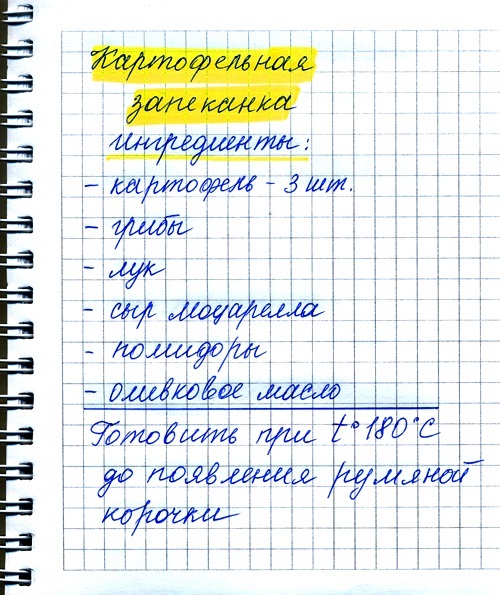 Картофельная
запеканка
ингредиенты:
- картофель - 3 шт.
- грибы
- лук
- сыр моцарелла
- помидоры
- оливковое масло
Готовить при t° 180°С
до появления румяной
корочки